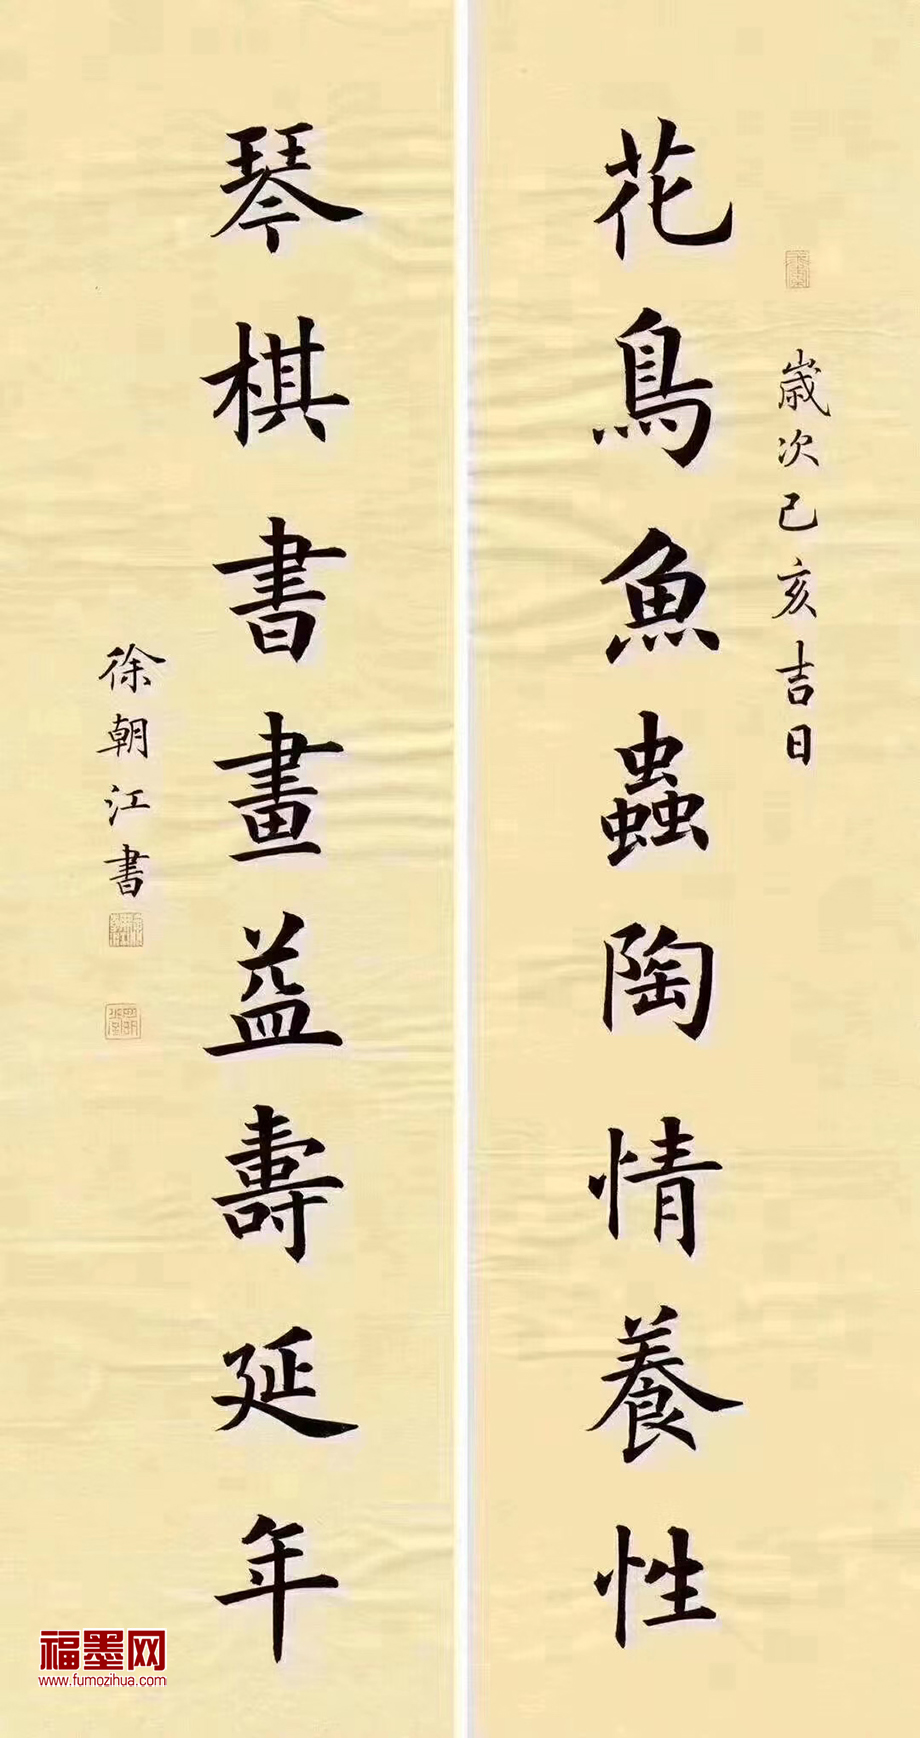 歲次己亥吉日
花鳥魚蟲陶情養性
琴棋書畫益壽延年
徐朝江書
福墨网
www.fumozihua.com